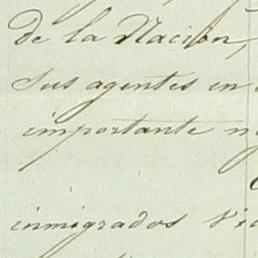 De la Nacion,
sus agentes en
importante
inmigrados